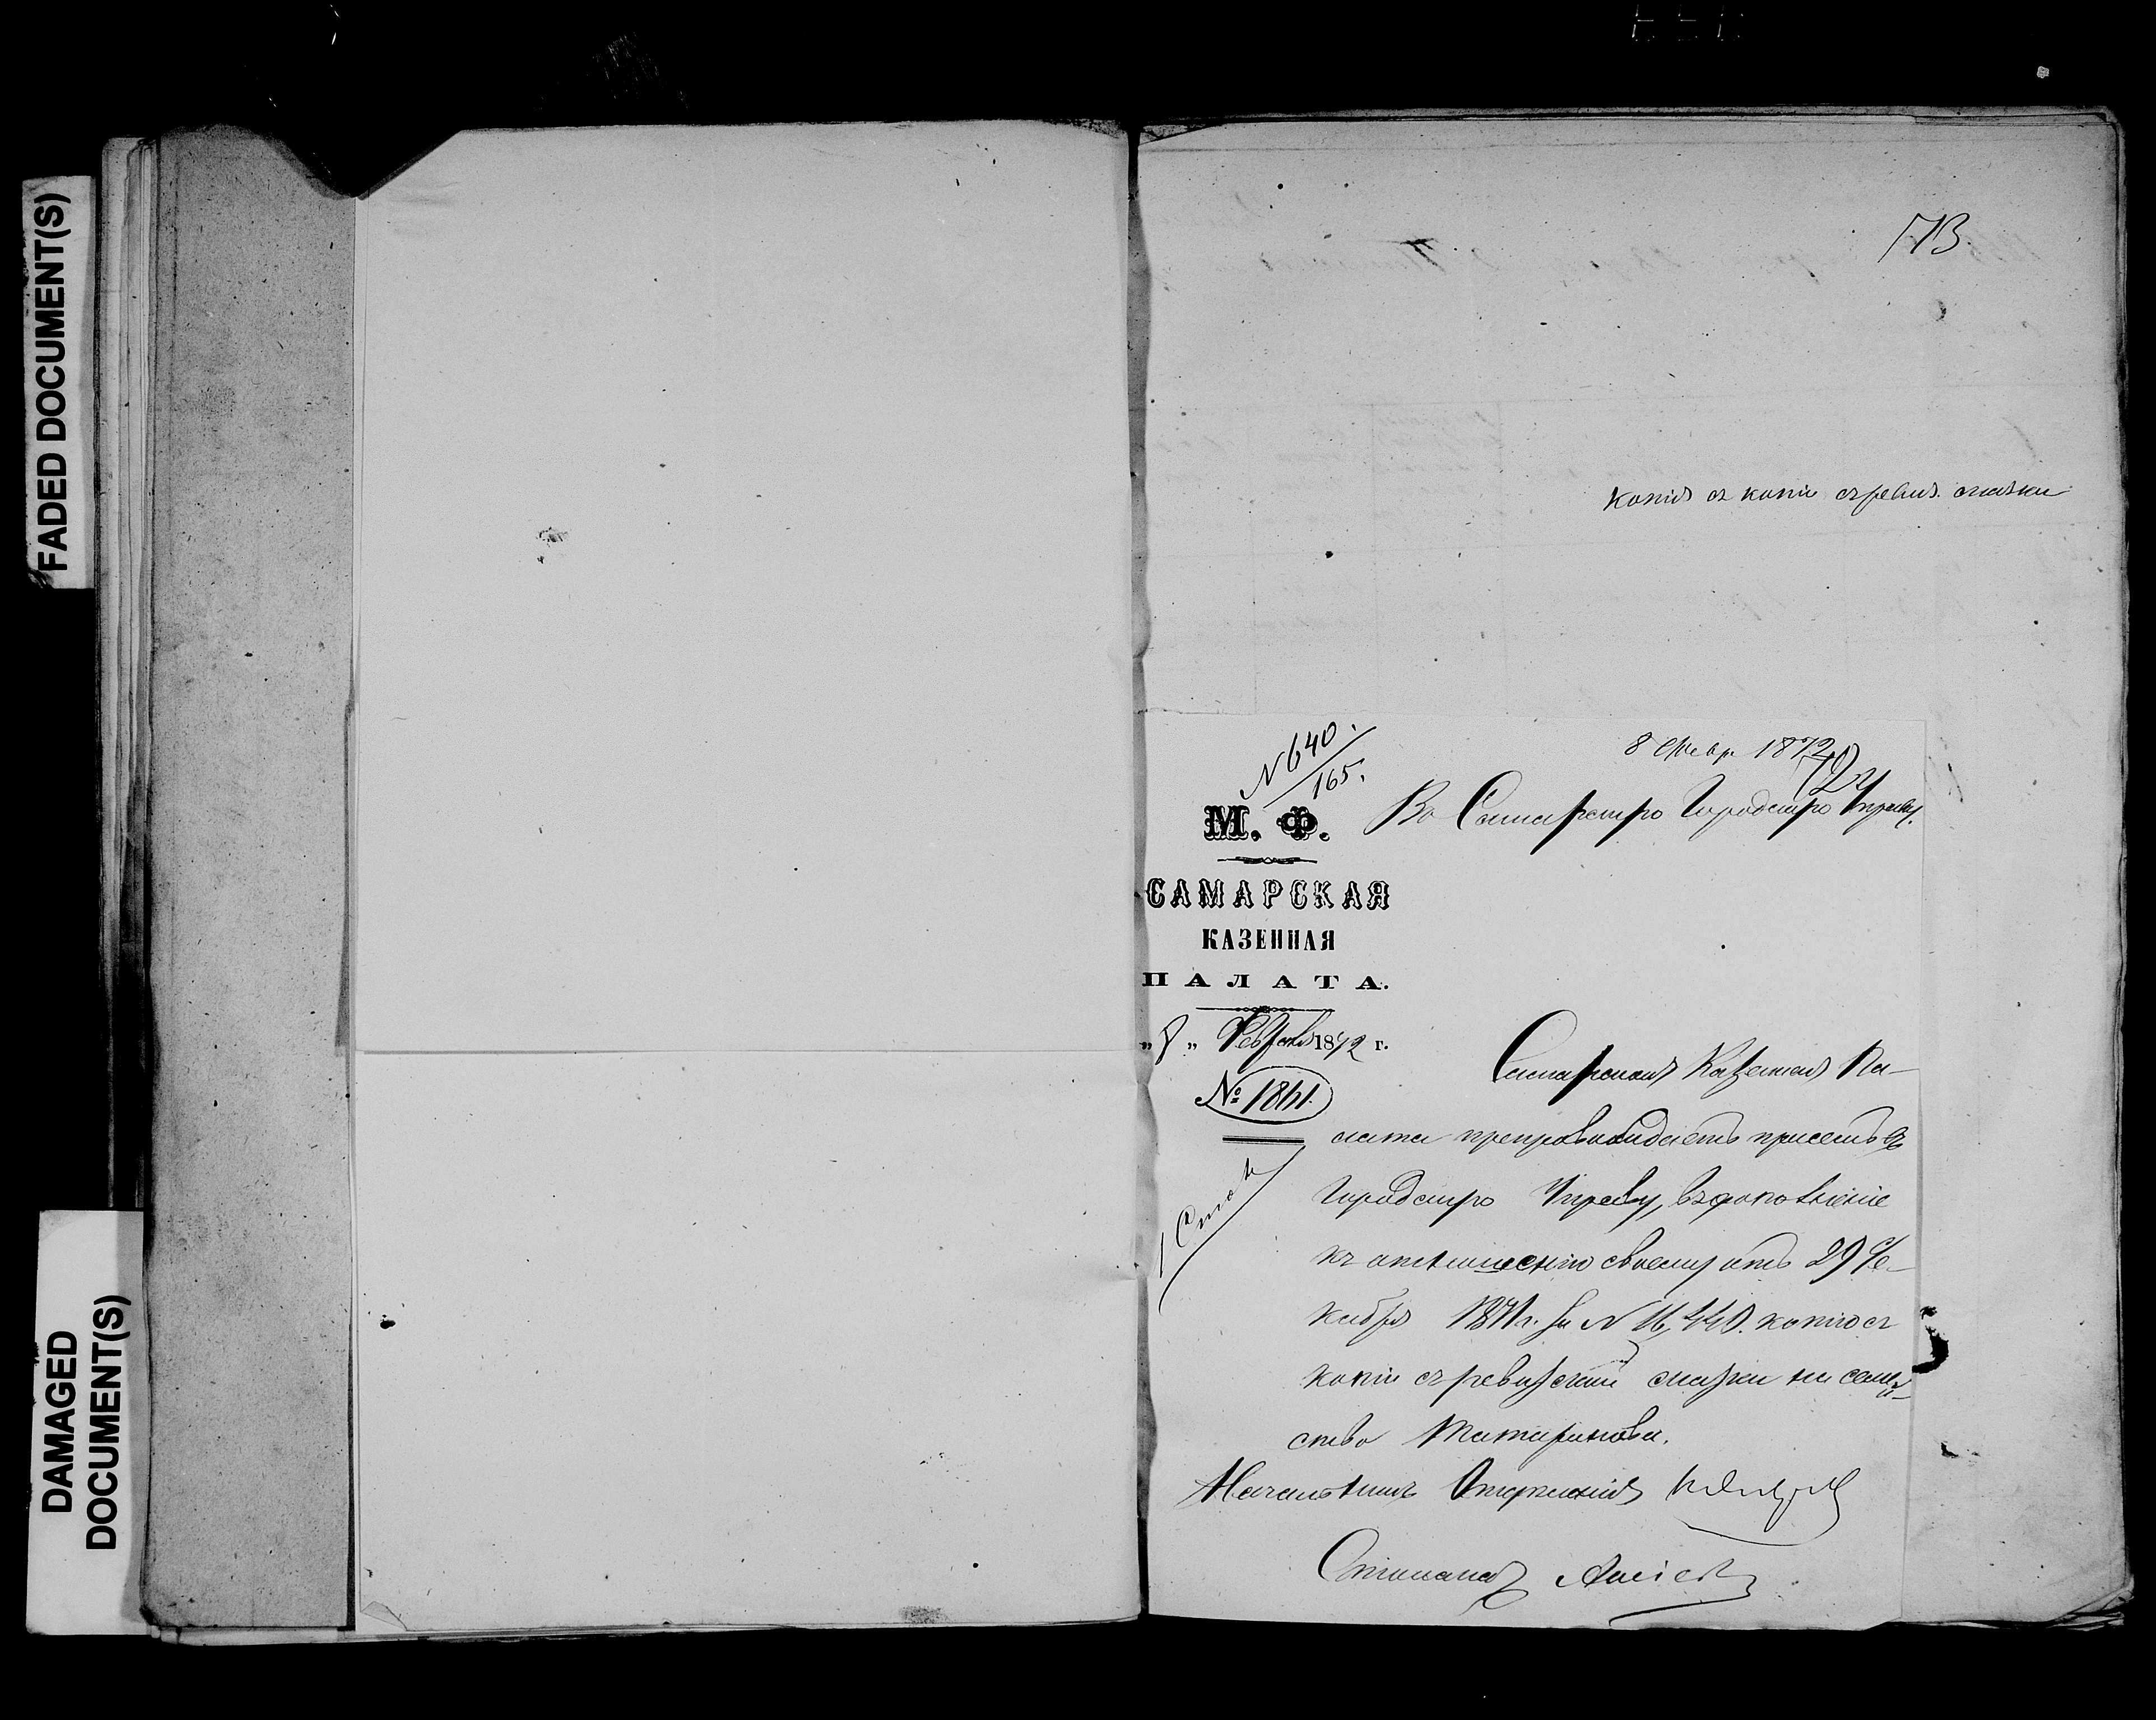 FADED DOCUMENT(S)
DAMAGED
DOCUMENT(S)
73
Копія съ копіи съ ревиз. сказки
8 Февр. 1872
N 640.
165.
М. Ф.
Въ Самарскую Городскую Управу.
САМАРСКАЯ
КАЗЕННАЯ
ПАЛАТА.
„ 8 „ Февраля 1872 г.
№ 1861.
1 Столъ
Самарская Казенная Па-
лата препровождаетъ при семъ въ
Городскую Управу, въ дополненіе
къ отношенію своему отъ 29 Де-
кабря 1871 г. за N 16,440. копію съ
копіи съ ревизской сказки на семей-
ство Татаринова.
Начальникъ Отделенія
Столонач.